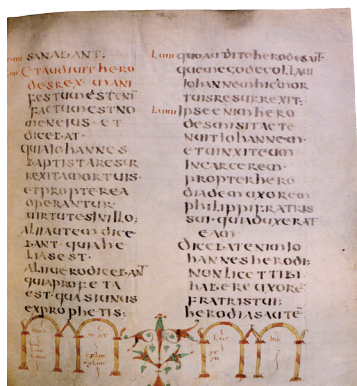 SANABANT·
ETAUDIUITHERO
DESREX·MANI
FESTUMESTENI̅
FACTUMESTNO
MENEIUS·ET
DICEBAT·
QUIAIOHANNES
BAPTISTARESUR
REXITAMORTUIS·
ETPROPTEREA
OPERANTUR
UIRTUTESINILLO;
ALIIAUTEMDICE
BANT·QUIAHE
LIASEST·
ALIIUERODICEBAN̅T
QUIAPROFETA
EST·QUASIUNUS
EXPROPHETIS;
QUOAUDITOHERODESAIT·
QUEMEGODECOLLAUI
IOHANNEMHICAMOR
TUISRESURREXIT;
IPSEENIMHERO
DESMISITACTE
NUITIOHANNEM·
ETUINXITEUM
INCARCEREM·
PROPTERHERO
DIADEMUXOREM
PHILIPPIFRATRIS
SUI·QUIADUXERAT
EAM·
DICEBATENIMIO
HANNESHERODI·
NONLICETTIBI
HABEREUXORE̅
FRATRISTUI;
HERODIASAUTE̅